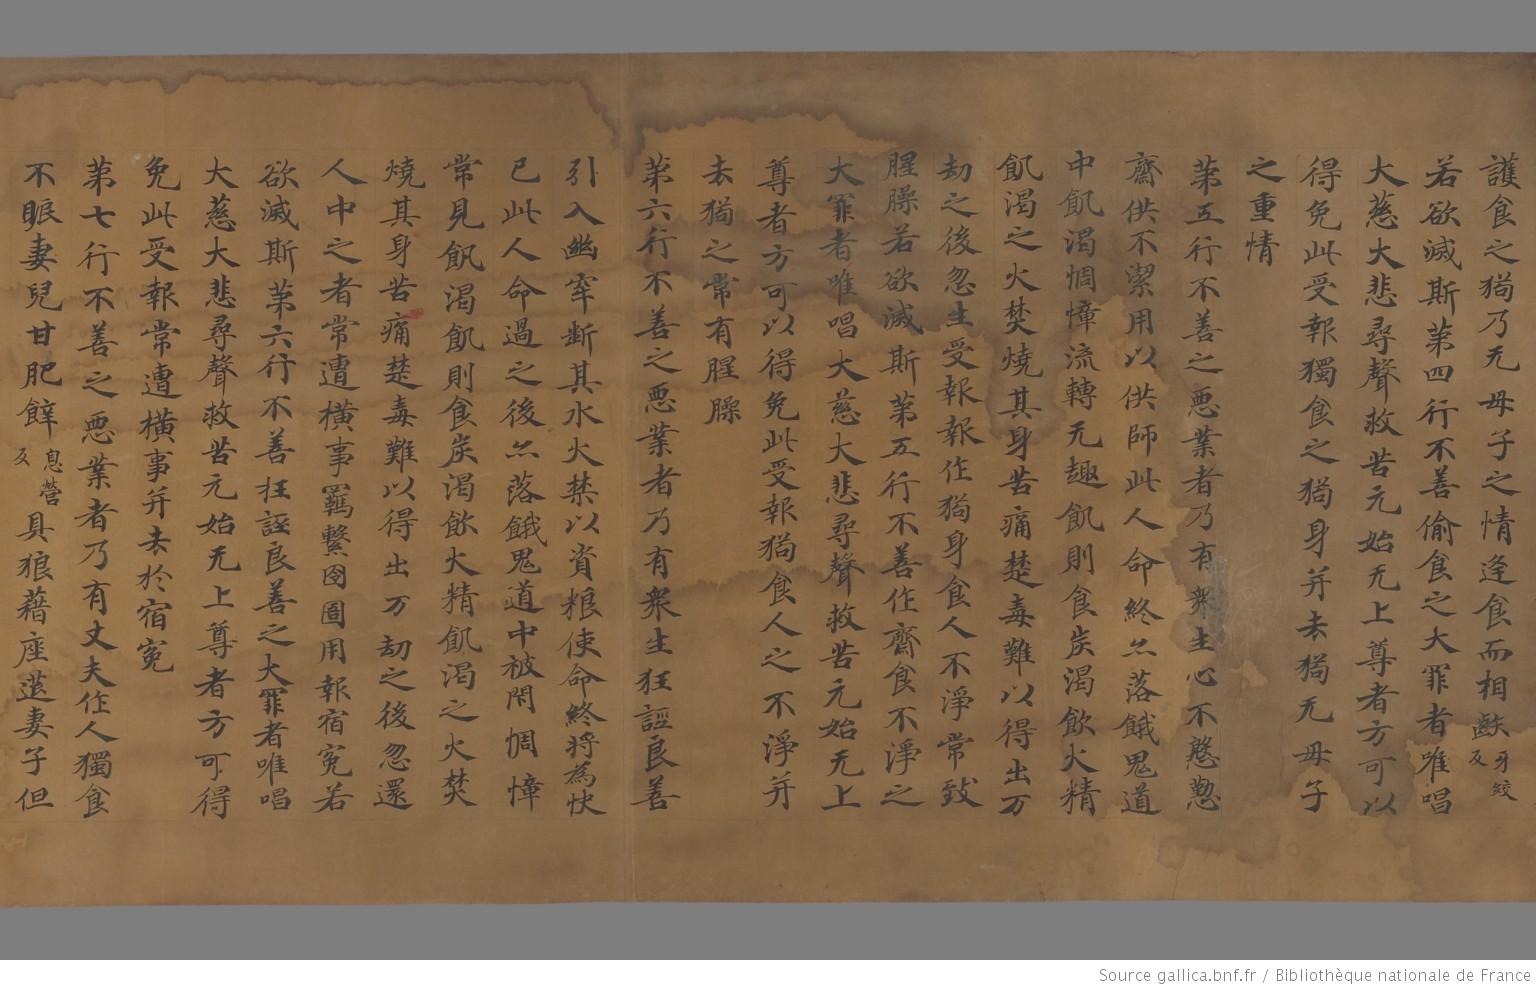 護食之猶乃无母子之情逢食而相齩牙絞反
若欲滅斯苐四行不善偷食之大罪者唯唱
大慈大悲尋聲救苦元始无上尊者方可以
得免此受報獨食之猶身并去猶无母子
之重情
苐五行不善之悪業者乃有衆生心不慇懃
齋供不潔用以供師此人命終亦落餓鬼道
中飢渴惆慞流轉无趣飢則食炭渴飲火精
飢渴之火焚燒其身苦痛楚毒難以得出万
劫之後忽生受報報作猶身食人不淨常致
腥臊若欲滅斯苐五行不善作齋食不淨之
大罪者唯唱大慈大悲尋聲救苦元始无上
尊者方可以得免此受報猶食人之不淨并
去猶之常有腥臊
苐六行不善之悪業者乃有衆生狂誣良善
引入幽牢斷其水火禁以資粮使命終將為快
已此人命過之後亦落餓鬼道中被罔惆慞
常見飢渴飢則食炭渴飲火精飢渴之火焚
燒其身苦痛楚毒難以得出万劫之後忽還
人中之者常遭橫事羈繫囹圄用報宿寃若
欲滅斯苐六行不善狂誣良善之大罪者唯唱
大慈大悲尋聲救苦元始无上尊者方可得
免此受報常遭橫事并去於宿寃
苐七行不善之悪業者乃有丈夫作人獨食
不眼妻兒甘肥䬳息營反具狼藉座延妻子但